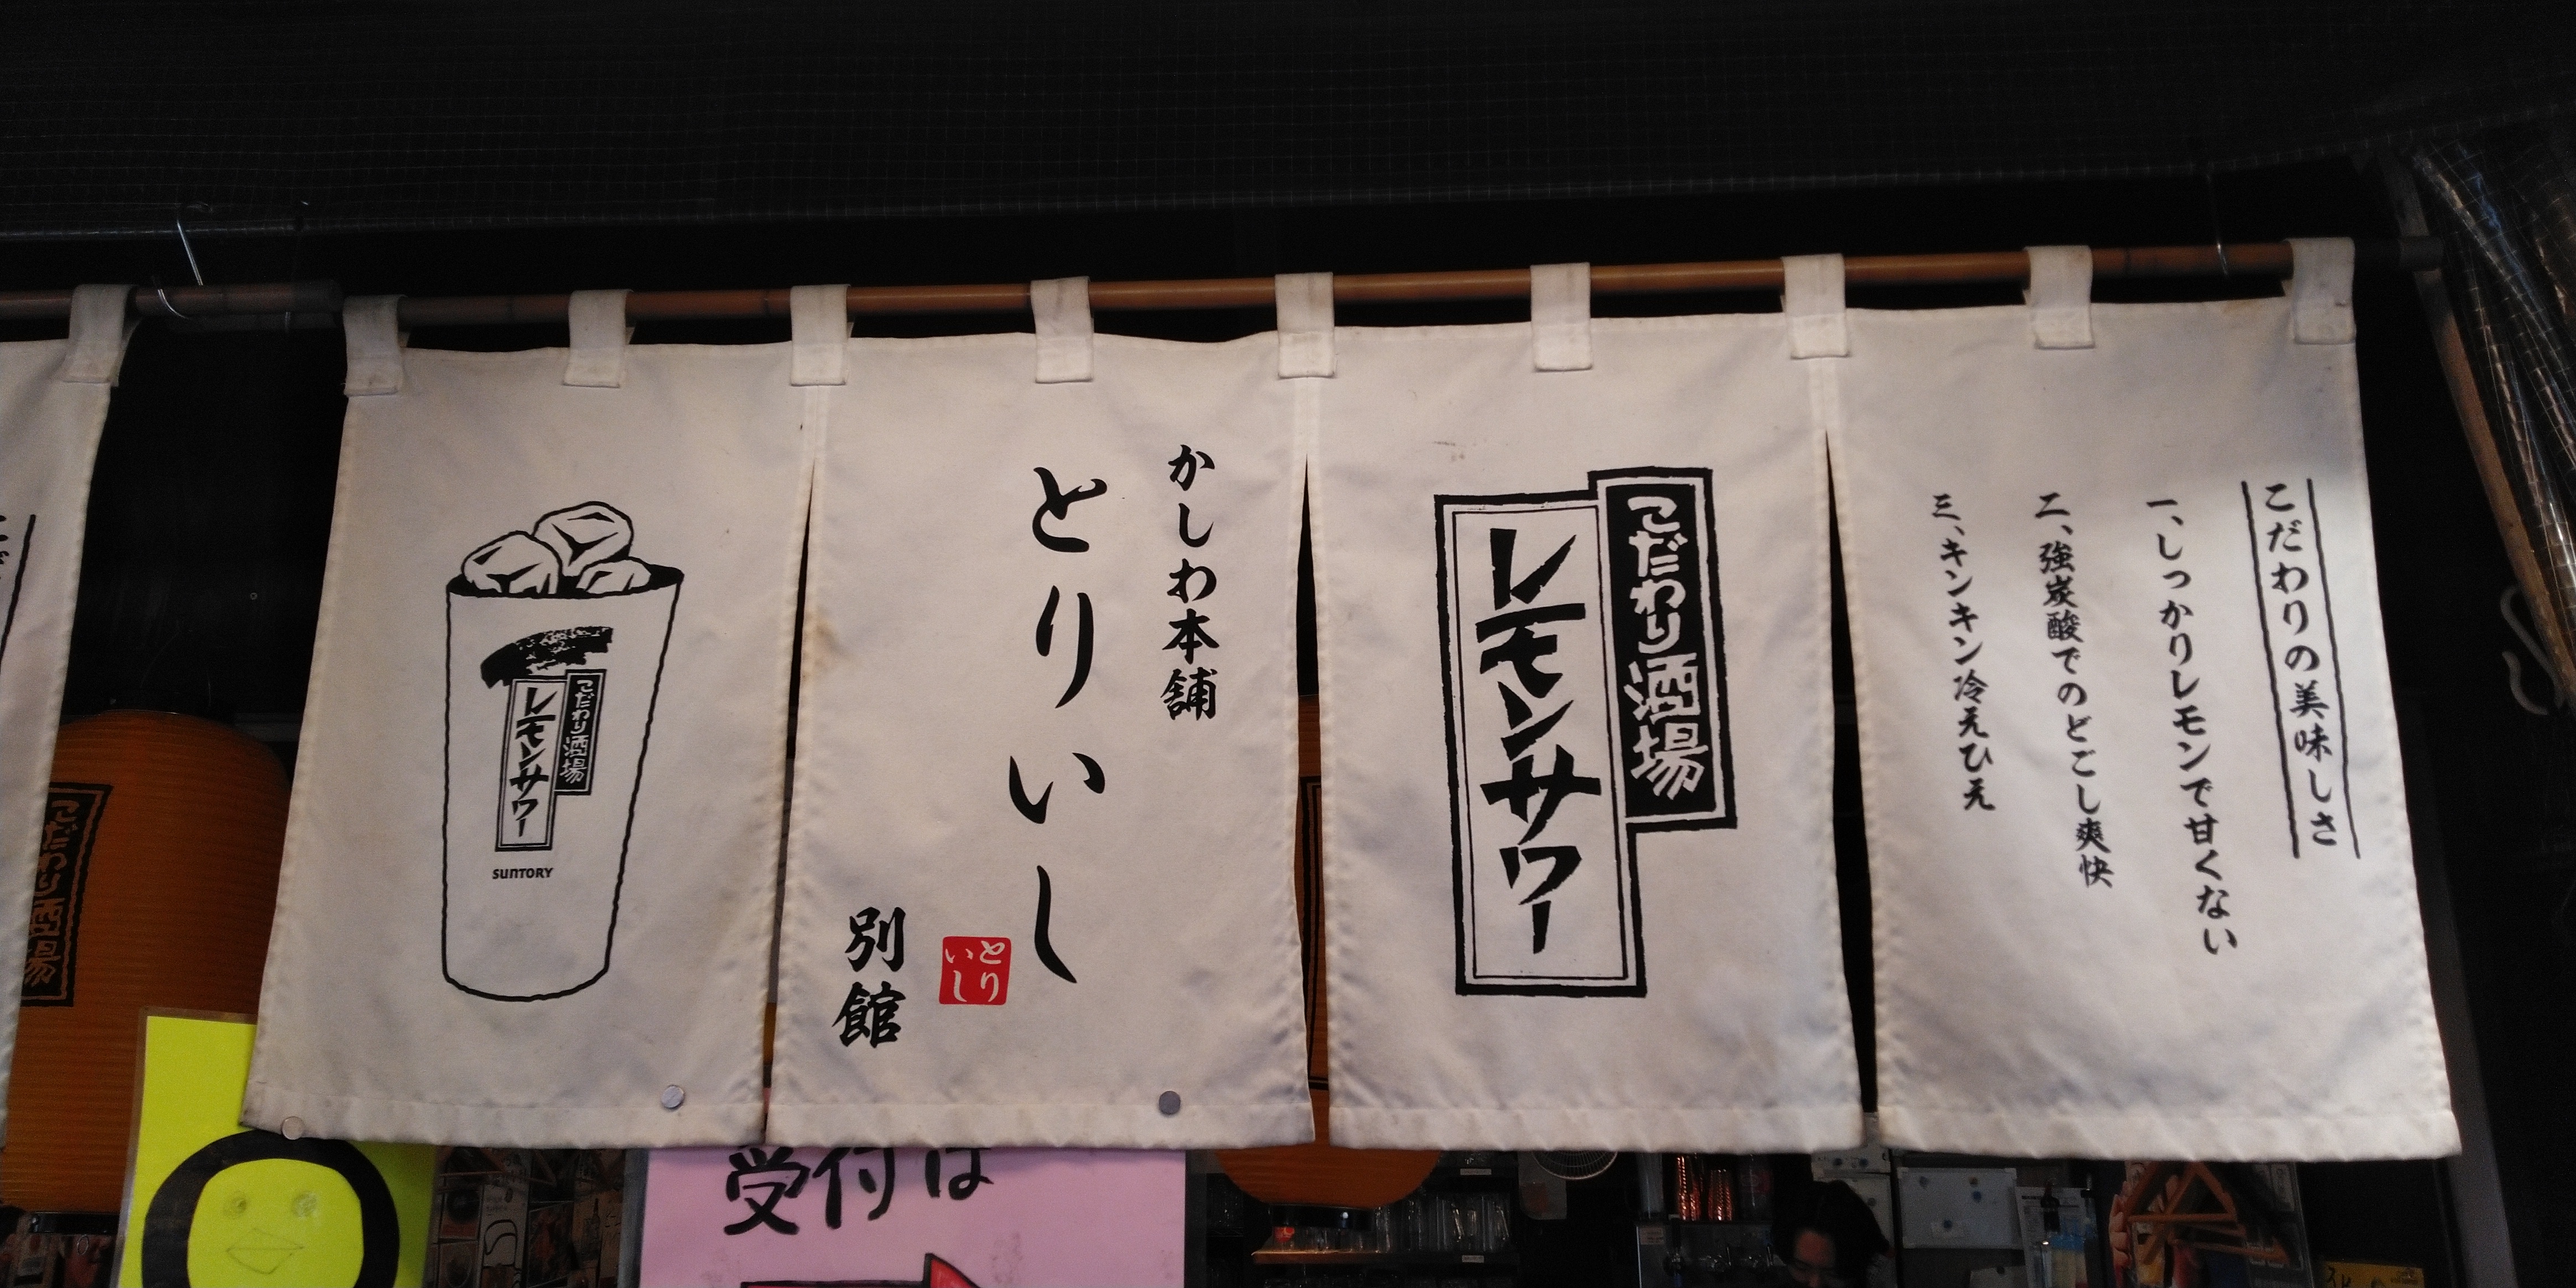 こだわりの美味しさ
一、しっかりレモンで甘くない
二、強炭酸でのどごし爽快
三、キンキン冷えひえ
こだわり酒場
レモンサワー
かしわ本舗
とりいし
とり
いし
別館
こだわり酒場
レモンサワー
SUNTORY
こだわり酒場
受付は